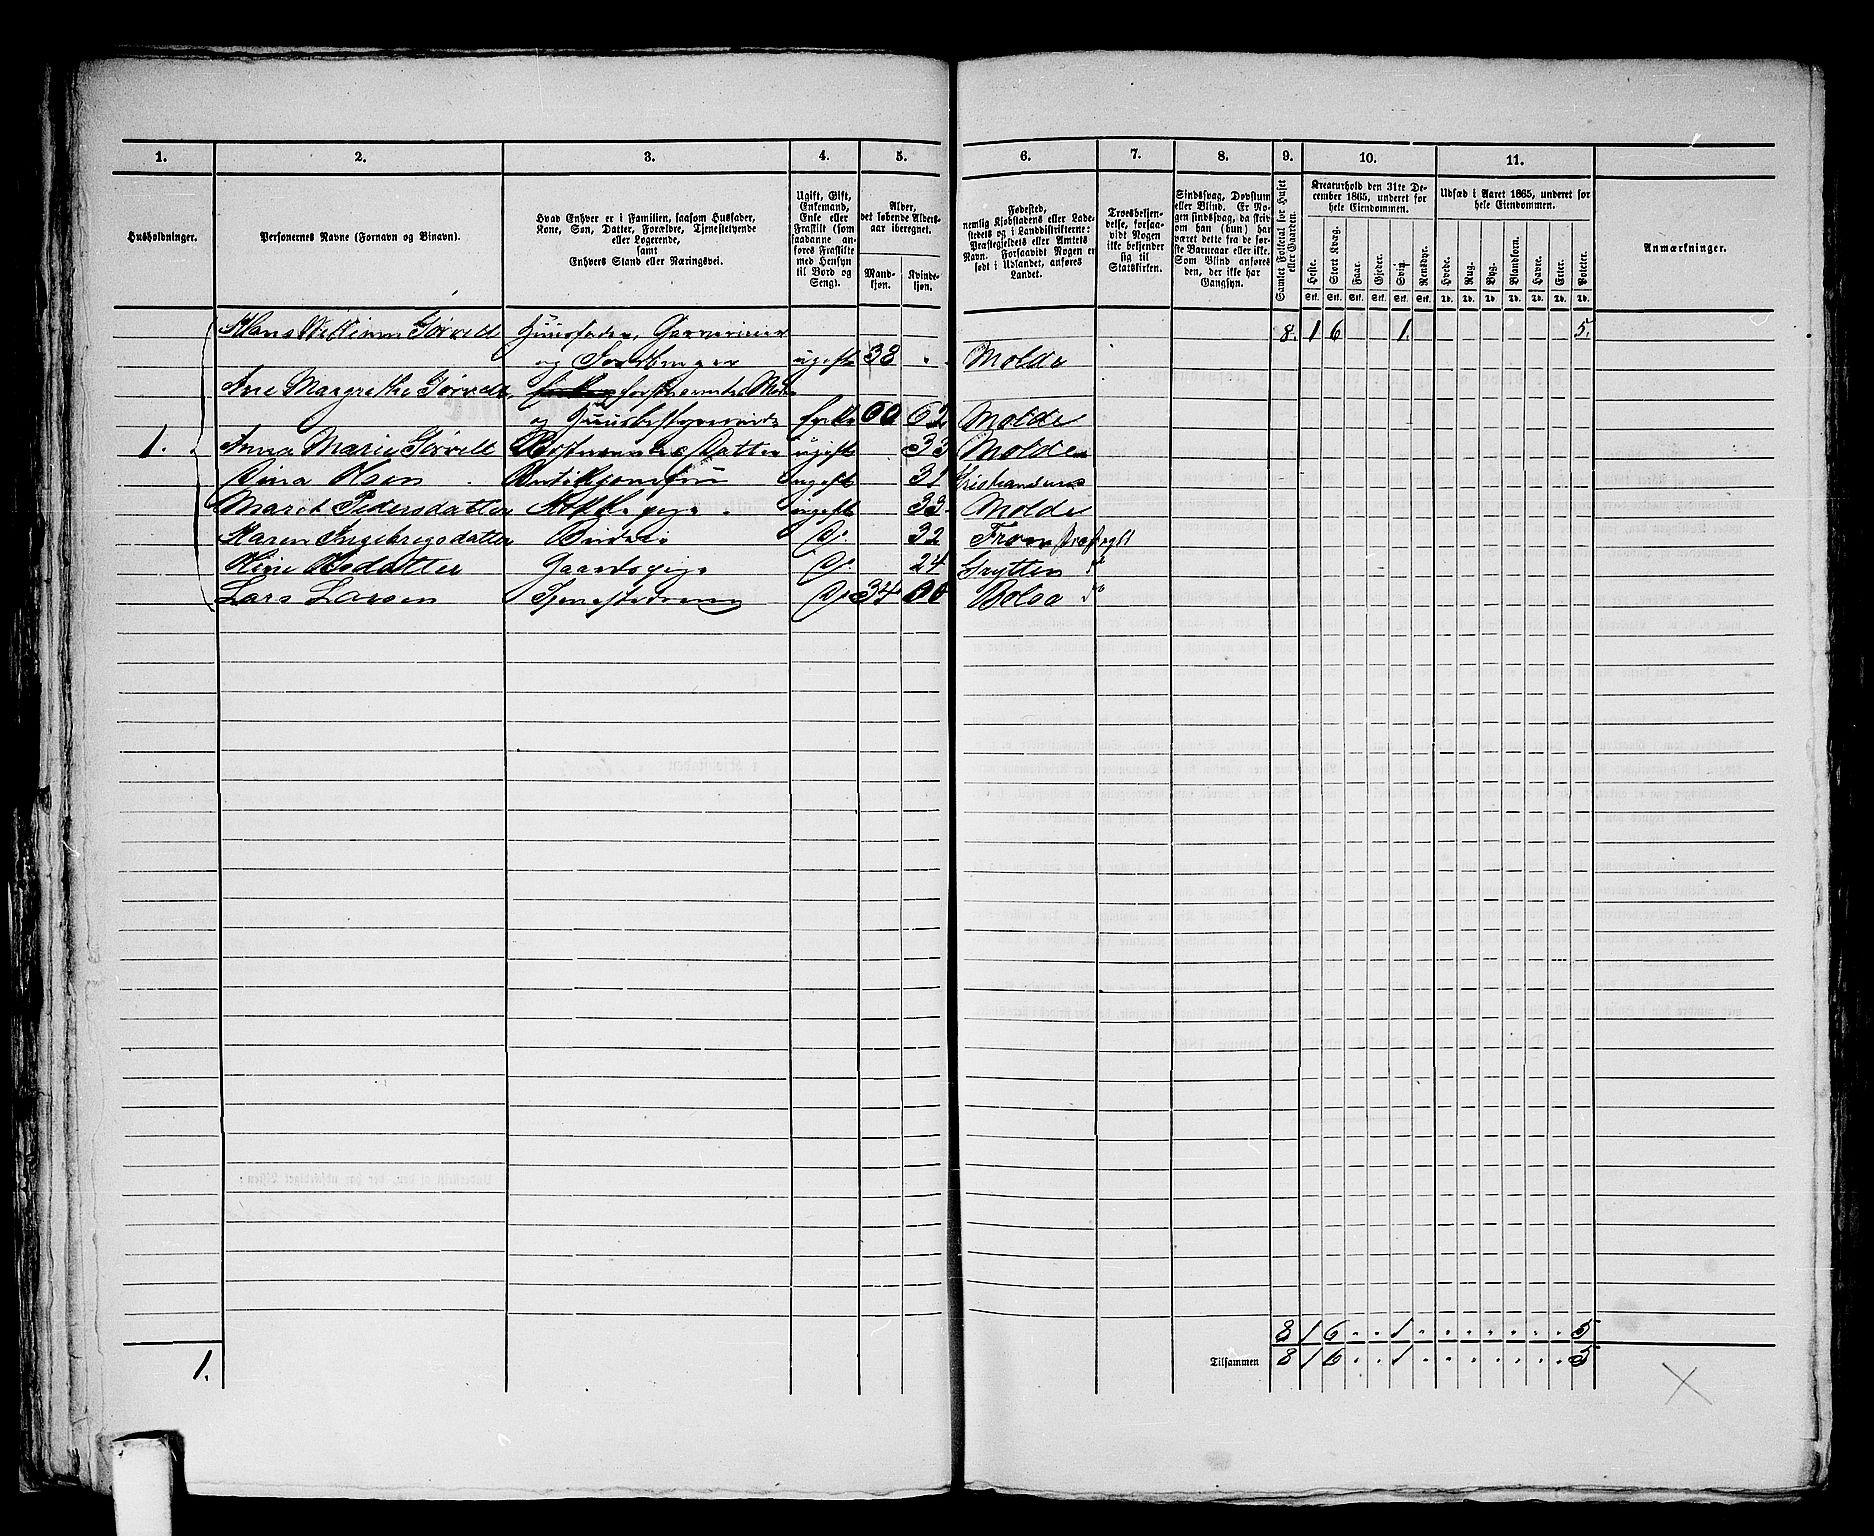 1. 2. 3. 4. 5. 6. 7. 8. 9. 10. 11.
Husholdninger.
Personernes Navne (Fornavn og Binavn).
Hvad Enhver er i Familien, saasom Husfader,
Kone, Søn, Datter, Forældre, Tjenestetyende
eller Logerende,
samt
Enhvers Stand eller Næringsvei.
Ugift, Gift,
Enkemand,
Enke eller
Fraskilt (som
saadanne an-
føres Fraskilte
med Hensyn
til Bord og
Seng).
Alder,
det løbende Alders-
aar iberegnet.
Mand-
kjøn.
Kvinde-
kjøn.
Fødested,
nemlig Kjøbstadens eller Lade-
stedets og i Landdistrikterne:
Præstegjeldets eller Amtets
Navn. Forsaavidt Nogen er
født i Udlandet, anføres
Landet.
Troesbekjen-
delse, forsaa-
vidt Nogen
ikke bekjender
sig til
Statskirken.
Sindssvag, Døvstum
eller Blind. Er No-
gen sindssvag, da skriv
om han (hun) har
været dette fra de før-
ste Barneaar eller ikke.
Som Blind anføres
den, der ikke har
Gangsyn.
Samlet Folketal for Huset
eller Gaarden.
Kreaturhold den 31te De-
cember 1865, underet for
hele Eiendommen.
Heste. Stort Kvæg. Faar. Gjeder. Svin. Rensdyr.
Stk. Stk. Stk. Stk. Stk. Stk.
Udsæd i Aaret 1865, underet for
hele Eiendommen.
Hvede. Rug. Byg. Blandkorn. Havre. Erter. Poteter.
Td. Td. Td. Td. Td. Td. Td.
Anmærkninger.
Hans William Gørvell Huusfader, 8. 1 6 1. 5.
og ugift 38 Molde
Ane Margrethe Gørvell
og Huusbestyrerinde Enke 00 62 Molde
1. Anna Marie Gørvell Datter ugift 33 Molde
Dina Olsen ugift 31
Marit Pedersdatter Kokkepige ugift 33 Molde
Karen Ingebrigsdatter Do 32
Gaardspige Do 24 Grytten Do
Lars Larsen Tjenestedreng Do 34 00 Bolsø Do
8 1 6 . . 1 . . . . . . . 5
1. Tilsammen 8 1 6 . . 1 . . . . . . . 5